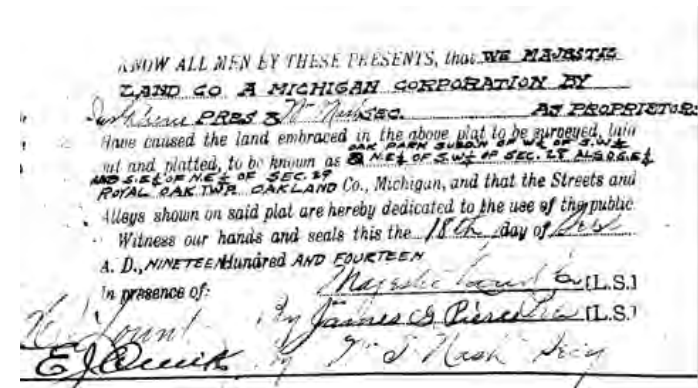 KNOW ALL MEN BY THESE PRESENTS, that WE MAJESTIC
LAND CO A MICHIGAN CORPORATION BY
PRES & SEC. AS PROPRIETOR
Have caused the land embraced in the above plat to be surveyed, laid
OAK PARK SUBD'N OF W½ OF S.W¼
out and platted, to be known as & N.E¼ OF S.W¼ OF SEC. 28 ALSO S.E¼
AND S.E¼ OF N.E¼ OF SEC. 29
ROYAL OAK TWP. OAKLAND Co., Michigan, and that the Streets and
Alleys shown on said plat are hereby dedicated to the use of the public.
Witness our hands and seals this the 18th day of
A. D., NINETEEN Hundred AND FOURTEEN
In presence of: Majestic Land Co [L.S.]
By James G Pierce [L.S.]
E J Quirk by Nash Secy